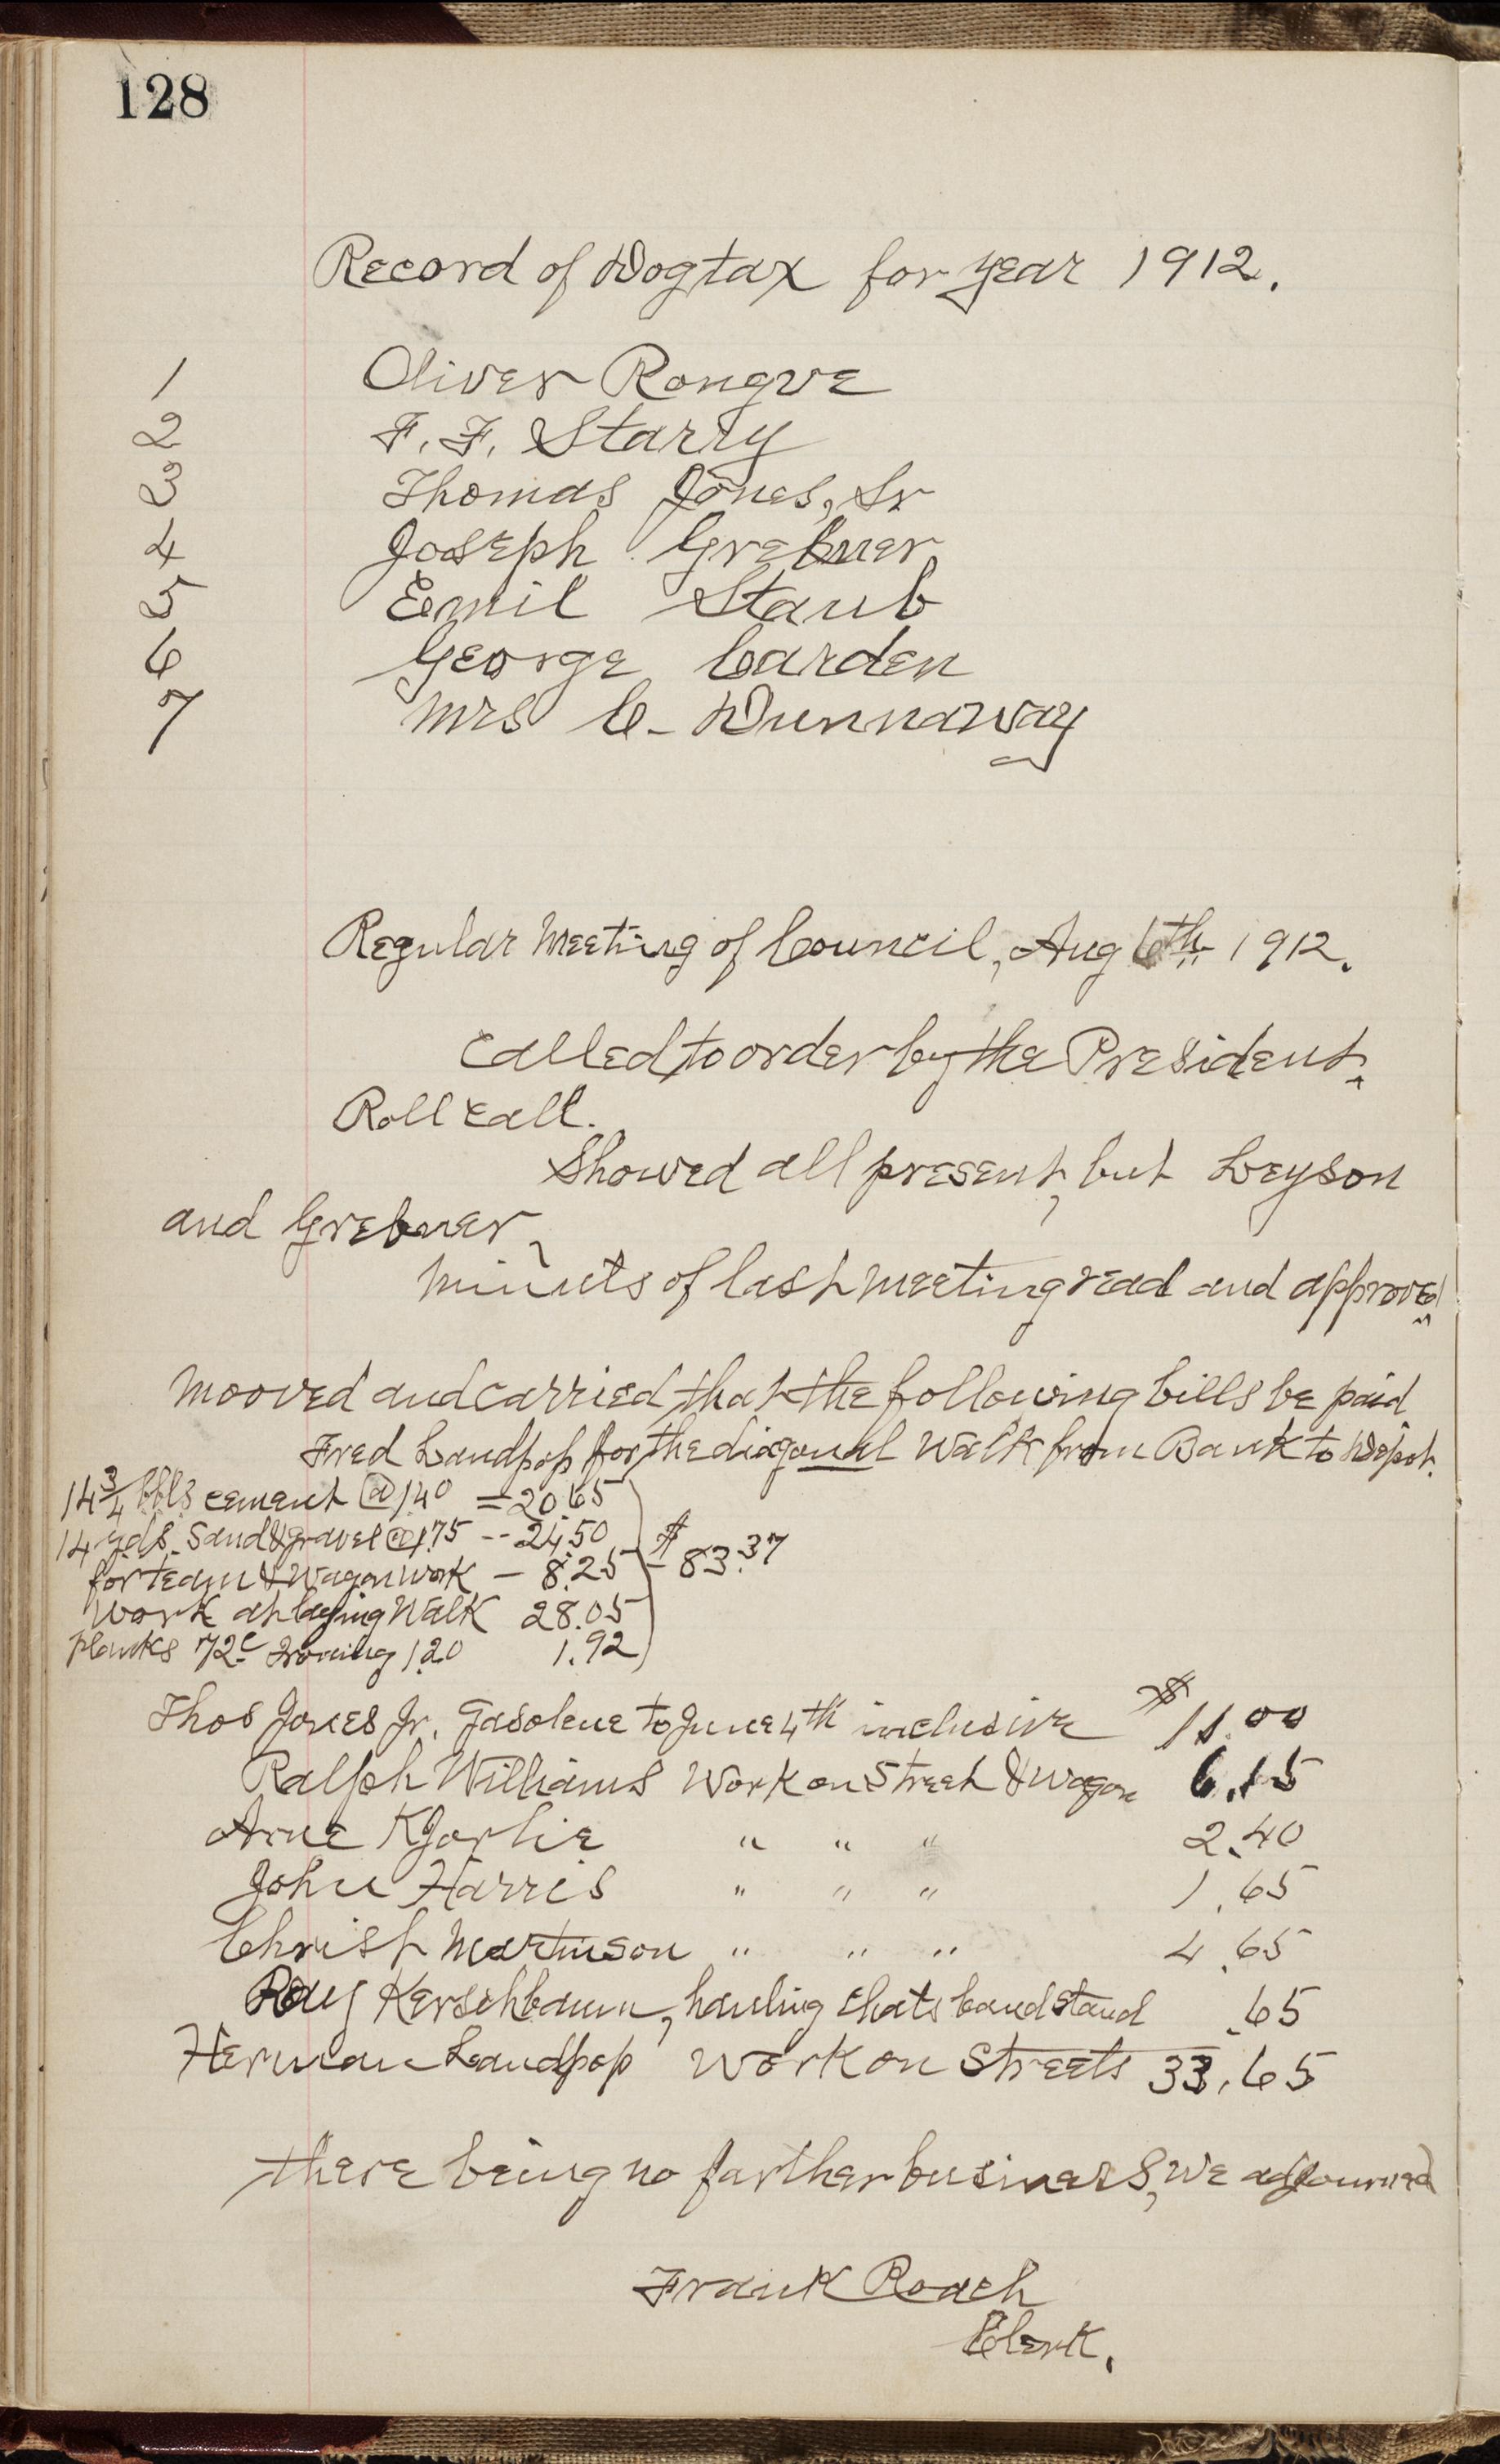 128
Record of Dogtax for year 1912.
1 Oliver Rongve
2 F. F. Starry
3 Thomas Jones, Sr
4 Joseph Grebner
5 Emil Staub
6 George Carden
7 Mrs C- Dunnaway
Regular Meeting of Council, Aug 6th 1912.
Called to order by the President.
Roll Call.
Showed all present, but Leyson
and Grebner,
Minuts of last meeting read and approved
Mooved and carried that the following bills be paid
Fred Landpop for the diagonal Walk from Bank to Depot.
14 3/4 bbls cement @ 1.40 = 20.65
14 yds. Sand & gravel @ 1.75 -- 24.50
for team & Wagon work - 8.25 - $83.37
Work at laying Walk 28.05
planks 72c Ironing 1.20 1.92
Thos Jones Jr. Gasolene to June 4th inclusive $11.00
Ralph Williams Work on Street & Wagon 6.15
Arne Kjorlie " " " 2.40
John Harris " " " 1.65
Christ Martinson " " " 4.65
Ray Kerschbaum, hauling Chats band stand .65
Herman Landpop Work on Streets 33.65
there being no farther business, we adjourned
Frank Roach
Clerk.